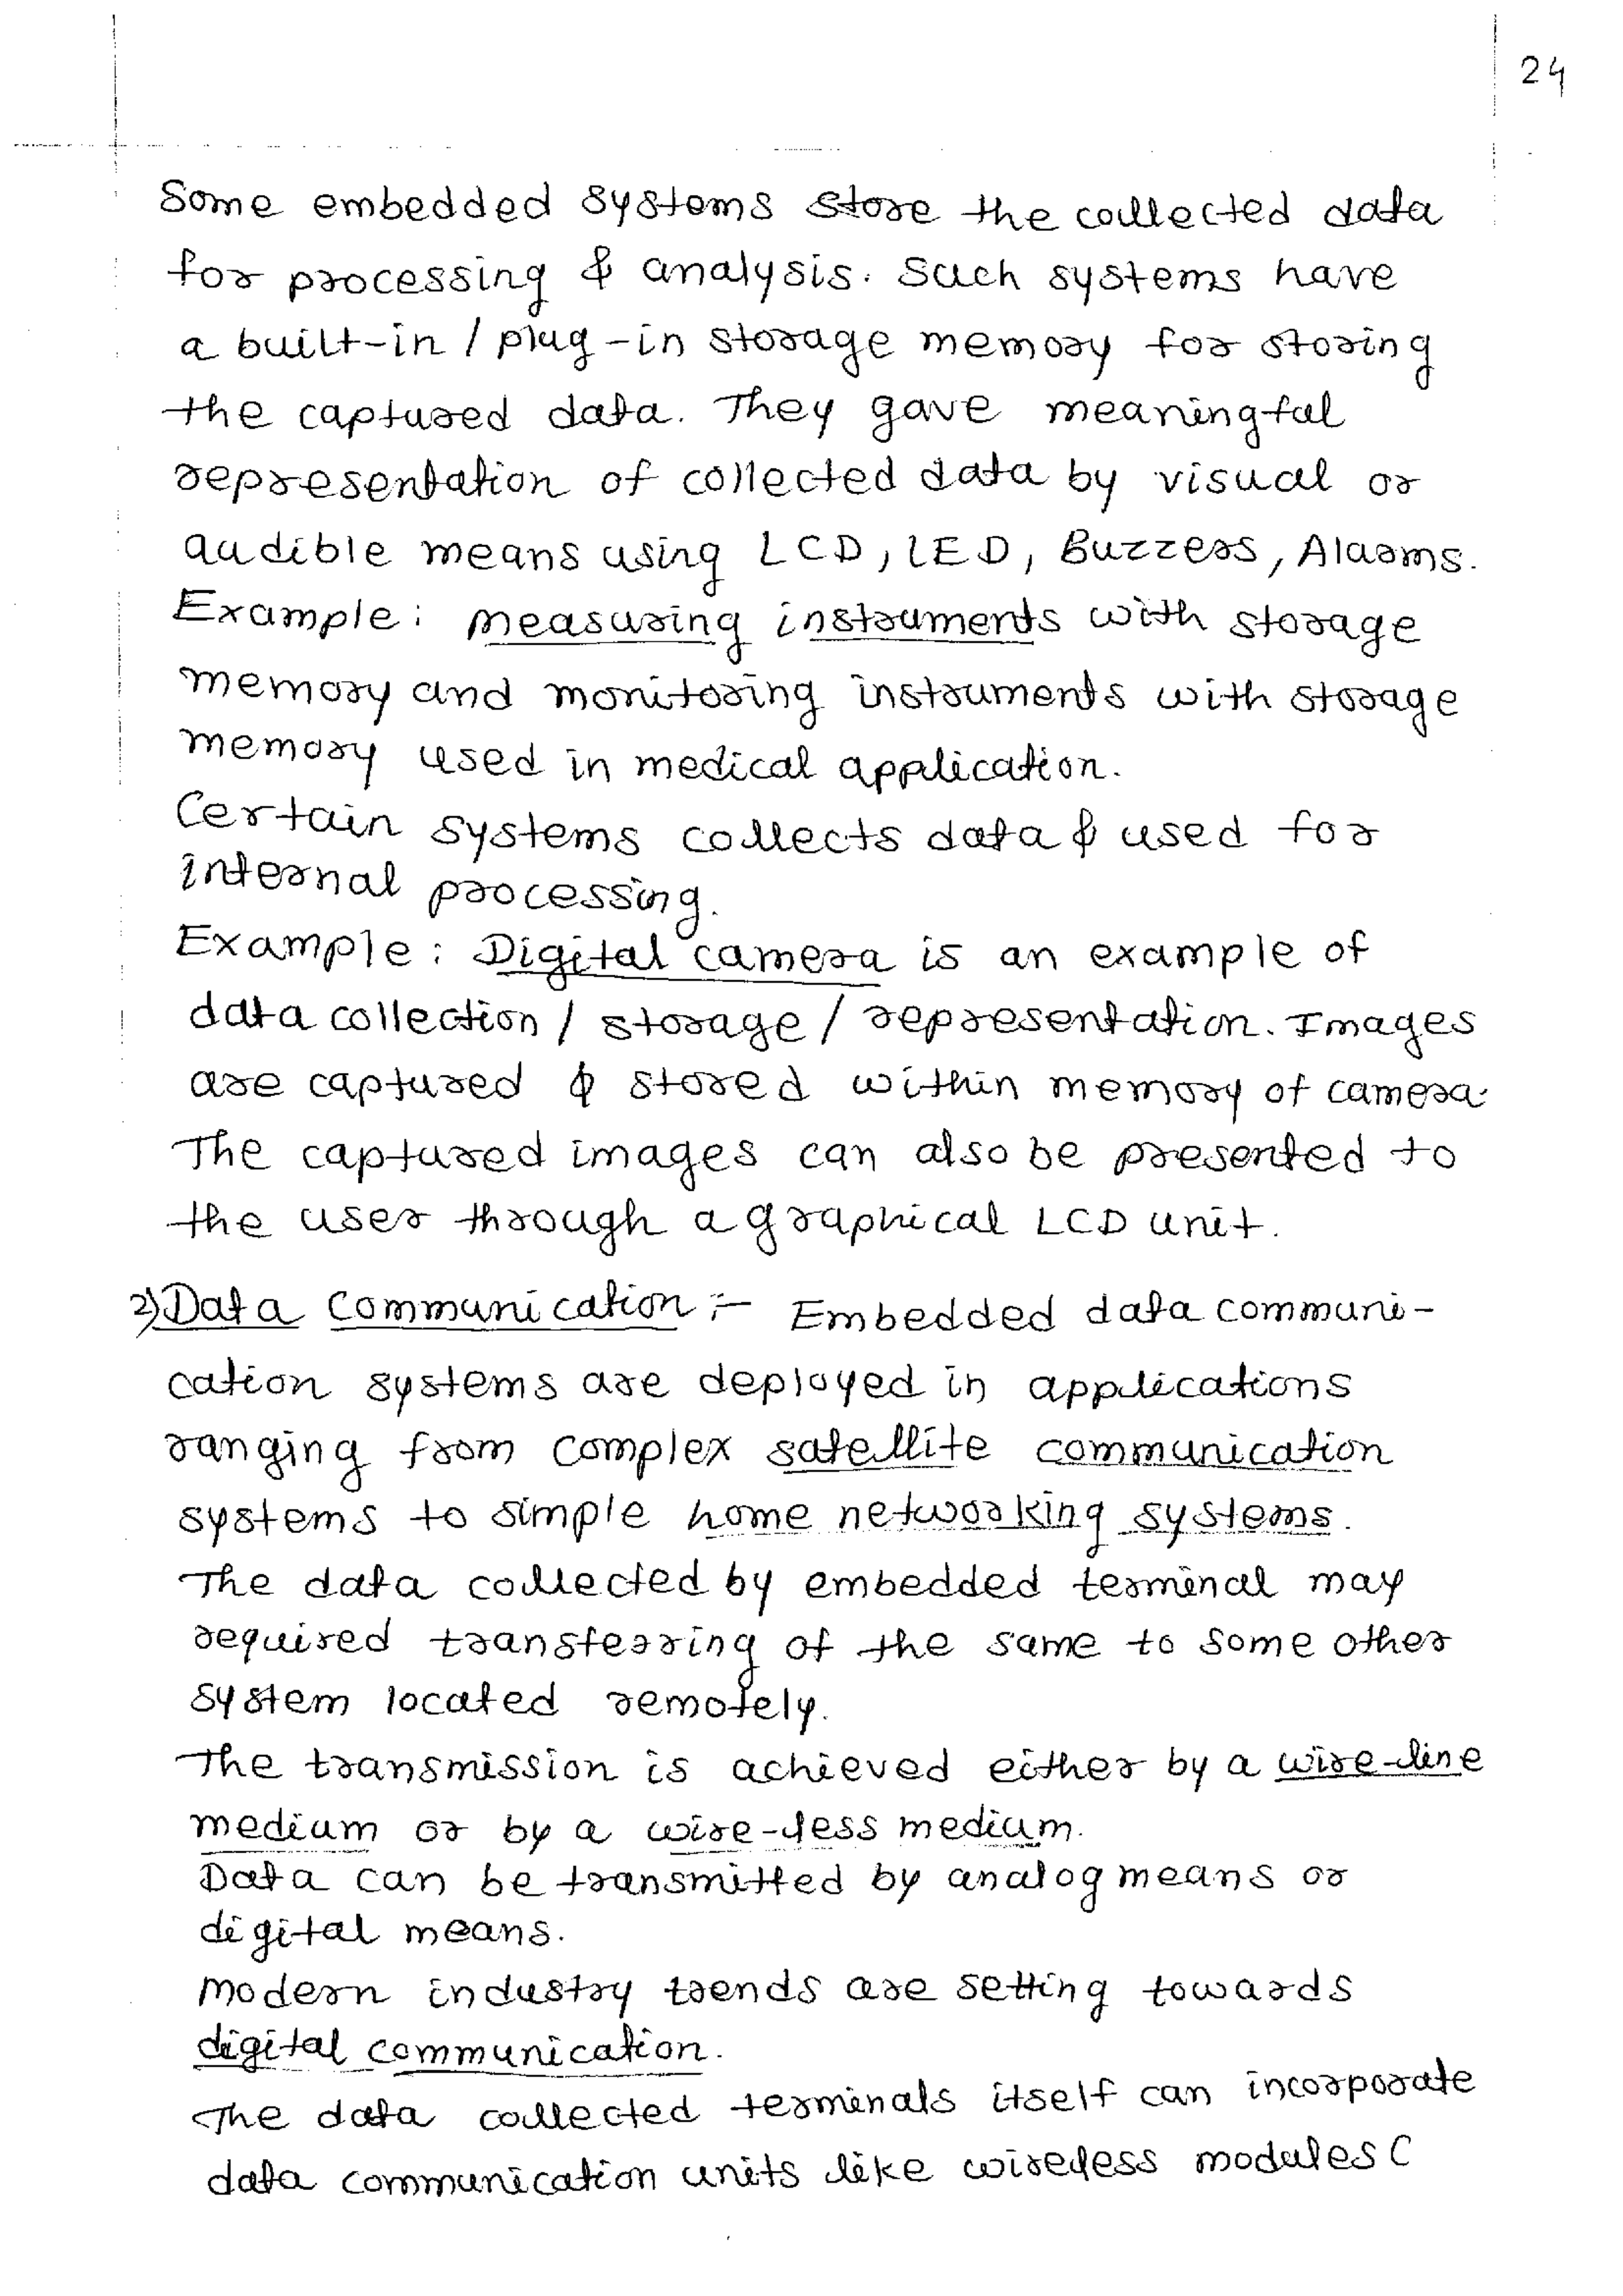 24
Some embedded systems store the collected data
for processing & analysis. Such systems have
a built-in / plug-in storage memory for storing
the captured data. They gave meaningful
representation of collected data by visual or
audible means using LCD, LED, Buzzers, Alarms.
Example: measuring instruments with storage
memory and monitoring instruments with storage
memory used in medical application.
Certain systems collects data & used for
internal processing.
Example: Digital camera is an example of
data collection / storage / representation. Images
are captured & stored within memory of camera.
The captured images can also be presented to
the user through a graphical LCD unit.
2) Data Communication :- Embedded data communi-
cation systems are deployed in applications
ranging from complex satellite communication
systems to simple home networking systems.
The data collected by embedded terminal may
required transferring of the same to some other
system located remotely.
The transmission is achieved either by a wire-line
medium or by a wire-less medium.
Data can be transmitted by analog means or
digital means.
Modern industry trends are setting towards
digital communication.
The data collected terminals itself can incorporate
data communication units like wireless modules (